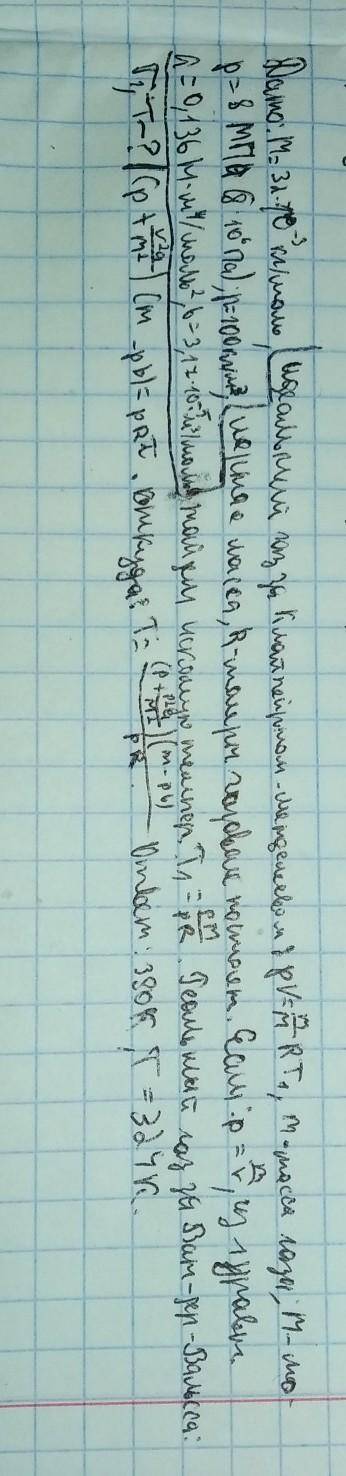 Дано: M = 32·10⁻³ кг/моль, идеальный газ за Клапейроном-Менделеевом: pV = m/M RT₁, m-масса газа, M-мо-
p = 8 МПа (8·10⁶ Па), ρ = 100 кг/м³, лярная масса, R-моляр. газовая постоян. Если: ρ = m/V, из 1 уравн.
a = 0,136 Н·м⁴/моль², b = 3,17·10⁻⁵ м³/моль найдем искомую темпер. T₁ = pM/ρR. Реальный газ за Ван-дер-Ваальса:
T₁, T - ? (p + ρ²a/M²)(M - ρb) = ρRT, откуда: T = (p + ρ²a/M²)(M - ρb)/ρR. Ответ: 380К, T = 324К.